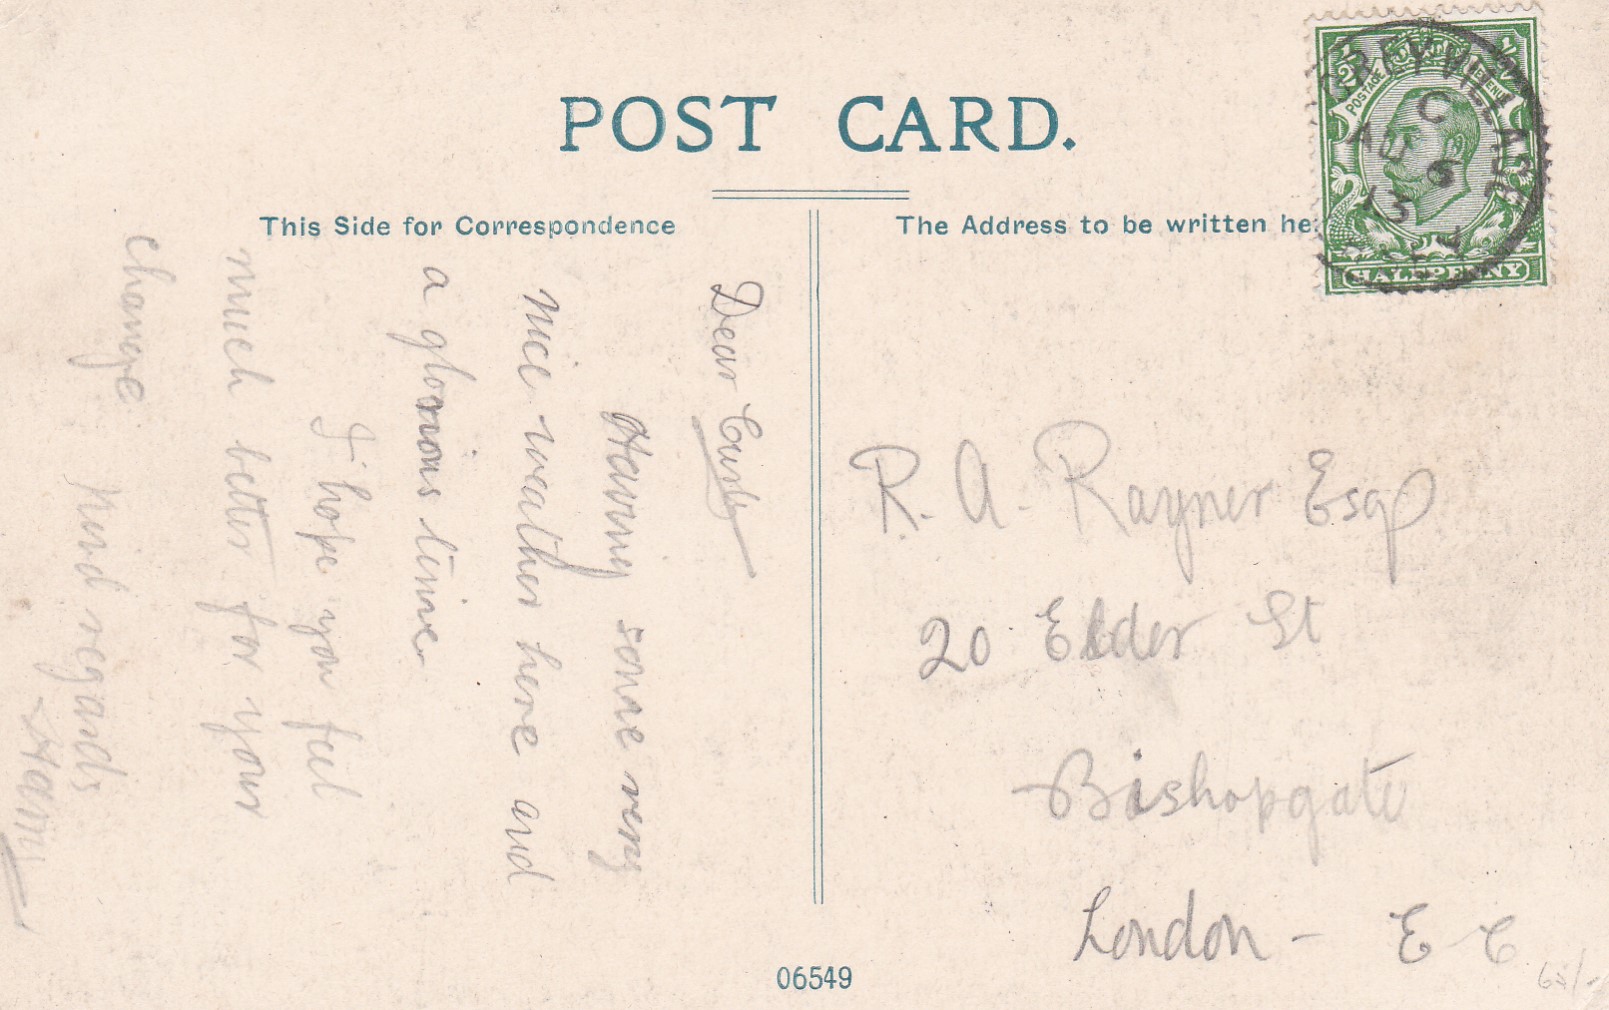 POST CARD.
This Side for Correspondence
The Address to be written he
Dear Curly
Having some very
nice weather here and
a glorious time
I hope you feel
much better for your
change
Kind regards
Harry
R. A. Rayner Esq
20 Elder St
Bishopgate
London - E C
06549
POSTAGE
REVENUE
HALFPENNY
VILLAGE
C
AU 6
13